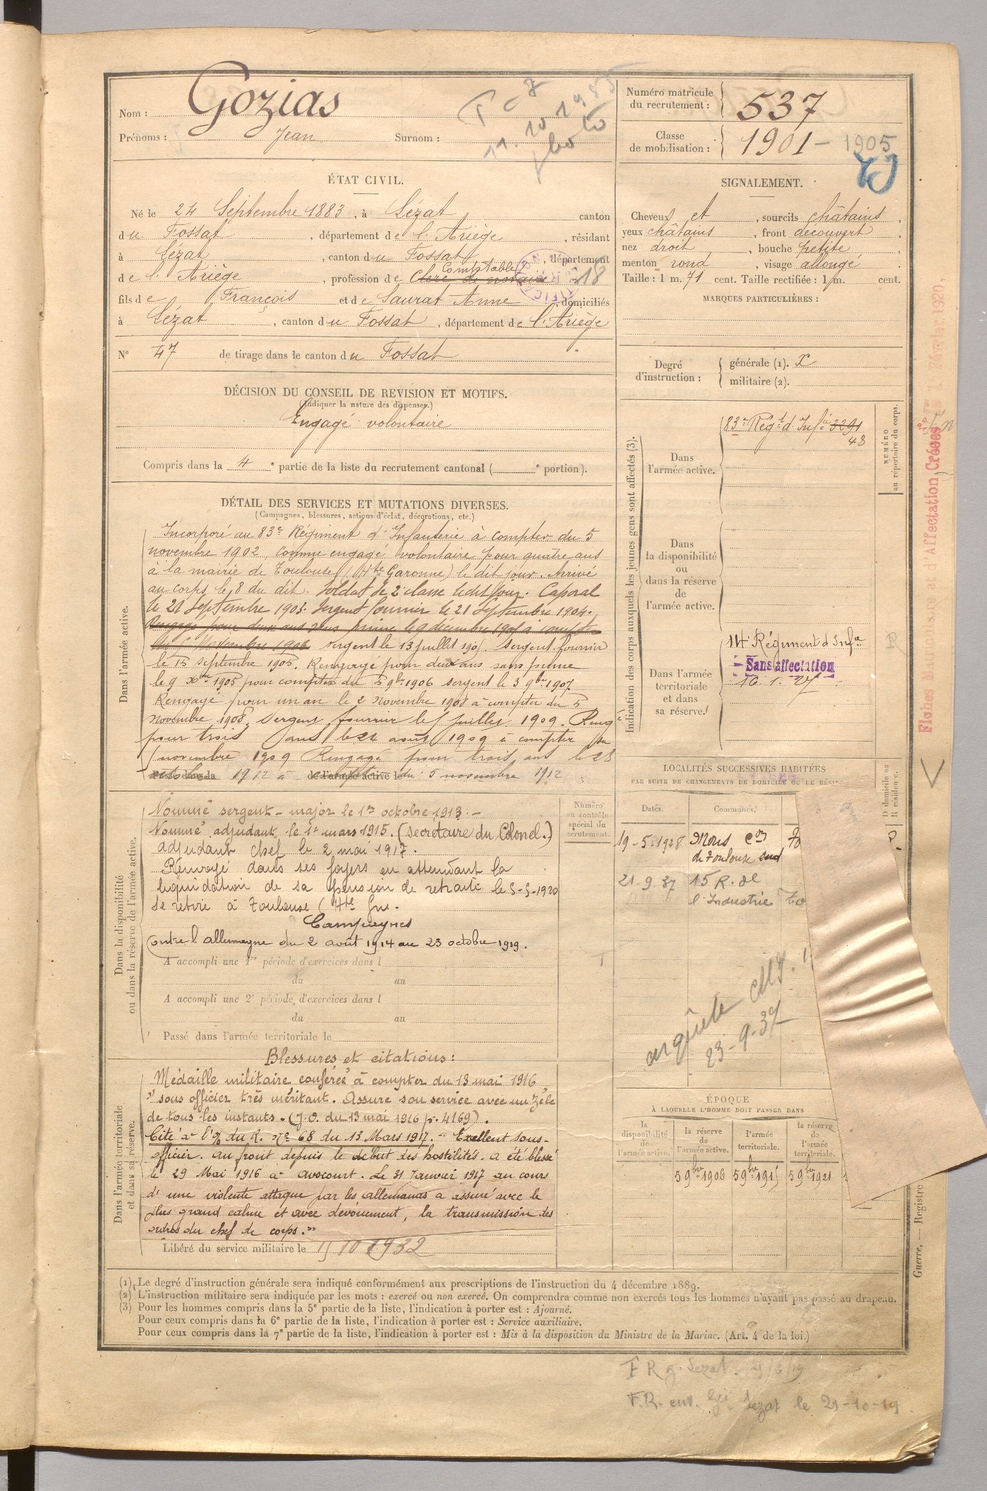 Nom : Gozias
Prénoms : Jean Surnom :
11.10.1985
photo
Numéro matricule du recrutement : 537
Classe de mobilisation : 1901 - 1905
ÉTAT CIVIL.
Né le 24 Septembre 1883, à Lézat canton
du Fossat, département de l'Ariège, résidant
à Lézat, canton du Fossat, département
de l'Ariège, profession de Clerc de notaire Comptable 18
fils de François et de Saurat Anne, domiciliés
à Lézat, canton du Fossat, département de l'Ariège
N° 47 de tirage dans le canton du Fossat
SIGNALEMENT.
Cheveux et, sourcils châtains,
yeux châtains, front découvert,
nez droit, bouche petite,
menton rond, visage allongé
Taille : 1 m. 71 cent. Taille rectifiée : 1 m. cent.
MARQUES PARTICULIÈRES :
Degré d'instruction : générale (1). X
militaire (2).
DÉCISION DU CONSEIL DE REVISION ET MOTIFS.
(Indiquer la nature des dispenses.)
Engagé volontaire
Compris dans la 4e partie de la liste du recrutement cantonal ( e portion).
DÉTAIL DES SERVICES ET MUTATIONS DIVERSES.
(Campagnes, blessures, actions d'éclat, décorations, etc.)
Dans l'armée active.
Incorporé au 83e Régiment d'Infanterie à compter du 5
novembre 1902, comme engagé volontaire pour quatre ans
à la mairie de Toulouse (Hte Garonne) le dit jour. Arrivé
au corps le 8 du dit. Soldat de 2e classe le dit jour. Caporal
le 21 Septembre 1903. Sergent fourrier le 21 Septembre 1904.
Rengagé pour deux ans avec prime le 9 décembre 1905 à compter
du 5 Novembre 1906 sergent le 13 juillet 1905. Sergent fourrier
le 15 septembre 1905. Rengagé pour deux ans sans prime
le 9 Xbre 1905 pour compter du 5 9bre 1906 sergent le 3 9bre 1907
Rengagé pour un an le 2 novembre 1908 à compter du 5
novembre 1908, sergent fourrier le juillet 1909. Rengé
pour trois ans le 22 août 1909 à compter du
5 novembre 1909 Rengagé pour trois ans le 28
1912 à compter du : 5 novembre 1912
Dans la disponibilité ou dans la réserve de l'armée active.
Nommé sergent-major le 1er octobre 1913.-
Nommé adjudant le 1er mars 1915. (Secrétaire du Colonel.)
adjudant chef le 2 mai 1917.
Renvoyé dans ses foyers en attendant la
liquidation de sa pension de retraite le 5-5-1920
Se retire à Toulouse (Hte Gne.
Campagnes
Contre l'allemagne du 2 août 1914 au 23 octobre 1919.
A accompli une 1re période d'exercices dans l
du au
A accompli une 2e période d'exercices dans l
du au
Passé dans l'armée territoriale le
Dans l'armée territoriale et dans sa réserve.
Blessures et citations :
Médaille militaire conférée à compter du 13 mai 1916
"sous officier très méritant. Assure son service avec un zèle
de tous les instants. (J.O. du 13 mai 1916 p. 4169).
Cité à l'O/ du R. N° 68 du 13 Mars 1917. - Excellent sous-
officier. au front depuis le début des hostilités. a été blessé
le 29 Mai 1916 à Avocourt. Le 31 Janvier 1917 au cours
d'une violente attaque par les allemands a assuré avec le
plus grand calme et avec dévouement, la transmission des
ordres du chef de corps."
Libéré du service militaire le 15 10 1932
Indication des corps auxquels les jeunes gens sont affectés (3).
NUMÉRO au répertoire du corps.
Dans l'armée active.
83e Régt d'Infrie 3291
43
Dans la disponibilité ou dans la réserve de l'armée active.
Dans l'armée territoriale et dans sa réserve.
14e Régiment d'Infie
Sans affectation
10.1.27
LOCALITÉS SUCCESSIVES HABITÉES
PAR SUITE DE CHANGEMENTS DE DOMICILE OU DE RÉSI
Numéro au contrôle spécial du recrutement.
Dates. Communes.
D domicile ou R résidence.
19-5-1928 Mons Con
de Toulouse Sud
21.9.37 15 R. de
l'Industrie To
enquête
23-9-37
ÉPOQUE
À LAQUELLE L'HOMME DOIT PASSER DANS
la disponibilité de l'armée active. la réserve de l'armée active. l'armée territoriale. la réserve de l'armée territoriale.
5 9bre 1906 5 9bre 1915 5 9bre 1921
Guerre. — Registre
(1) Le degré d'instruction générale sera indiqué conformément aux prescriptions de l'instruction du 4 décembre 1889.
(2) L'instruction militaire sera indiquée par les mots : exercé ou non exercé. On comprendra comme non exercés tous les hommes n'ayant pas passé au drapeau.
(3) Pour les hommes compris dans la 5e partie de la liste, l'indication à porter est : Ajourné.
Pour ceux compris dans la 6e partie de la liste, l'indication à porter est : Service auxiliaire.
Pour ceux compris dans la 7e partie de la liste, l'indication à porter est : Mis à la disposition du Ministre de la Marine. (Art. 4 de la loi.)
Lezat
F.R. env. Lezat le 29-10-19